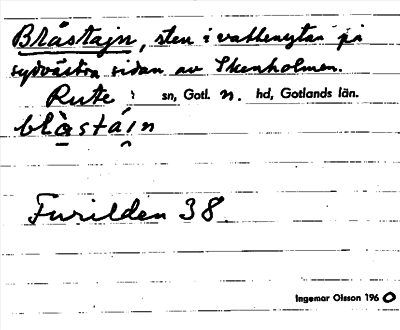 Blåstajn, sten i vattenytan på
sydvästra sidan av Skenholmen.
Rute : sn, Gotl. n. hd, Gotlands län.
blàstáin
Furilden 38
Ingemar Olsson 1960